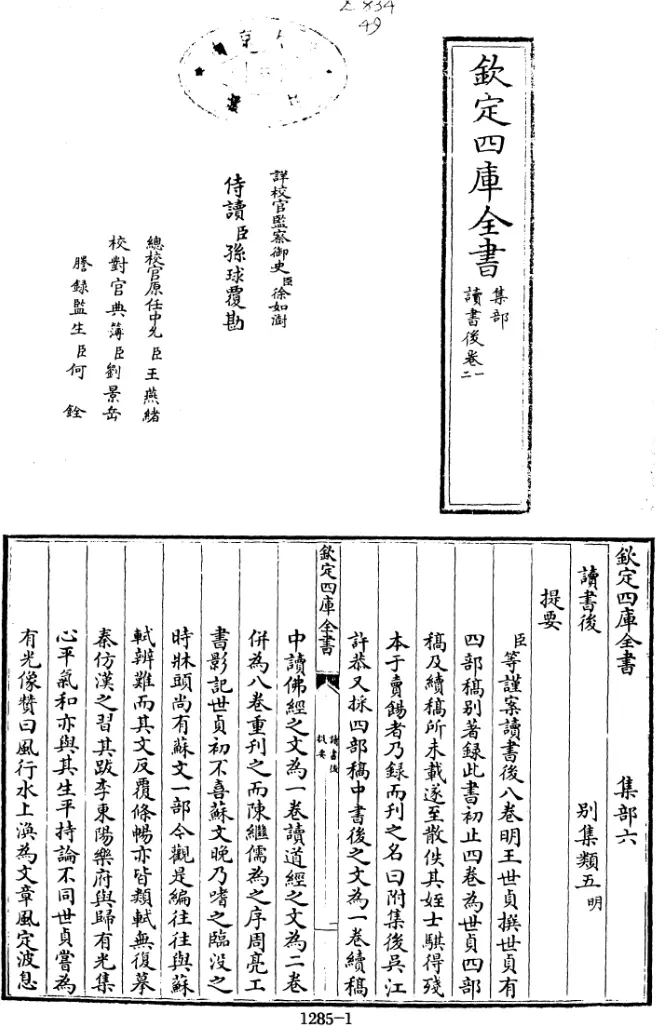 欽定四庫全書
集部
讀書後卷一
二
詳校官監察御史臣徐如澍
侍讀臣孫球覆勘
總校官原任中允臣王燕緒
校對官典簿臣劉景岳
謄錄監生臣何銓
欽定四庫全書
集部六
讀書後
別集類五明
提要
臣等謹案讀書後八卷明王世貞撰世貞有
四部稿别著録此書初止四卷為世貞四部
稿及續稿所未載遂至散佚其姪士騏得殘
本于賣餳者乃録而刊之名曰附集後吳江
許恭又採四部稿中書後之文為一卷續稿
欽定四庫全書
讀書後
提要
中讀佛經之文為一卷讀道經之文為二卷
併為八卷重刊之而陳繼儒為之序周亮工
書影記世貞初不喜蘇文晚乃嗜之臨没之
時牀頭尚有蘇文一部今觀是編往往與蘇
軾辨難而其文反覆條暢亦皆類軾無復摹
秦仿漢之習其跋李東陽樂府與歸有光集
心平氣和亦與其生平持論不同世貞嘗為
有光像贊曰風行水上渙為文章風定波息
1285-1